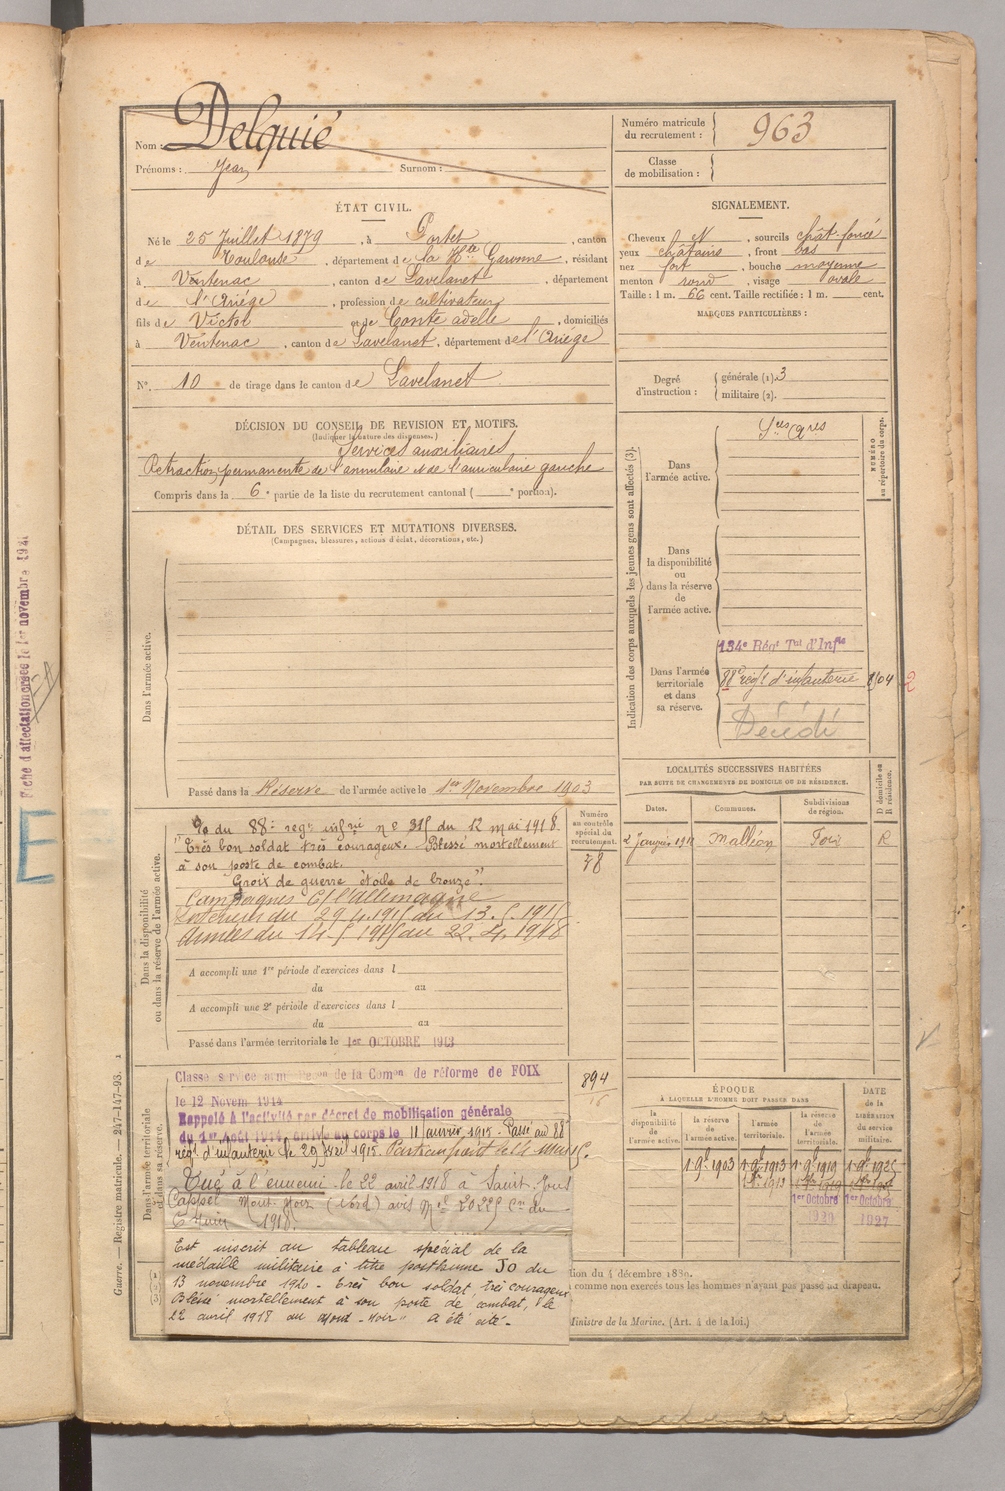 Nom : Delquié
Prénoms : Jean Surnom :
Numéro matricule du recrutement : 963
Classe de mobilisation :
ÉTAT CIVIL.
Né le 25 Juillet 1879, à Portet, canton
de Toulouse, département de la Hte Garonne, résidant
à Ventenac, canton de Lavelanet, département
de l'Ariége, profession de cultivateur
fils de Victor et de Conte adelle, domiciliés
à Ventenac, canton de Lavelanet, département de l'Ariège
N°. 10 de tirage dans le canton de Lavelanet
SIGNALEMENT.
Cheveux N, sourcils chât-foncé
yeux châtains, front bas
nez fort, bouche moyenne
menton rond, visage ovale
Taille : 1 m. 66 cent. Taille rectifiée : 1 m. cent.
MARQUES PARTICULIÈRES :
Degré d'instruction : générale (1). 3
militaire (2).
DÉCISION DU CONSEIL DE REVISION ET MOTIFS.
(Indiquer la nature des dispenses.)
Services auxiliaires
Rétraction permanente de l'annulaire et de l'auriculaire gauche
Compris dans la 6e partie de la liste du recrutement cantonal ( e portion).
DÉTAIL DES SERVICES ET MUTATIONS DIVERSES.
(Campagnes, blessures, actions d'éclat, décorations, etc.)
Dans l'armée active.
Passé dans la Réserve de l'armée active le 1er Novembre 1903
Indication des corps auxquels les jeunes gens sont affectés (3).
NUMÉRO au répertoire du corps.
Dans l'armée active.
Sces ares
Dans la disponibilité ou dans la réserve de l'armée active.
134e Régt Tal d'Infie
Dans l'armée territoriale et dans sa réserve.
88e régt d'infanterie
Décédé
LOCALITÉS SUCCESSIVES HABITÉES
PAR SUITE DE CHANGEMENTS DE DOMICILE OU DE RÉSIDENCE.
Dates. Communes. Subdivisions de région. D domicile ou R résidence.
Malléon Foix R
Dans la disponibilité ou dans la réserve de l'armée active.
Numéro au contrôle spécial du recrutement.
78
du 88e regt infrie n° 315 du 12 mai 1918.
"Très bon soldat très courageux. Blessé mortellement
à son poste de combat.
Croix de guerre étoile de bronze".
Campagnes C/ l'Allemagne
Intérieur du 29.4.1915 au 13.5.1915
Armées du 14.5.1915 au 22.4.1918
A accompli une 1re période d'exercices dans l
du au
A accompli une 2e période d'exercices dans l
du au
Passé dans l'armée territoriale le 1er OCTOBRE 1913
Dans l'armée territoriale et dans sa réserve.
Classé service armé de la Comon de réforme de FOIX
le 12 Novem 1914
Rappelé à l'activité par décret de mobilisation générale
du 1er Août 1914 arrivé au corps le 11 Janvier 1915. Passé au 88e
régt d'infanterie le 29 avril 1915.
894
Tué à l'ennemi le 22 avril 1918 à Saint Jans
Cappel Mont Noir (Nord) avis
1918.
Est inscrit au tableau spécial de la
médaille militaire à titre posthume JO du
13 novembre 1920 - très bon soldat, très courageux
Blessé mortellement à son poste de combat, le
22 avril 1918 au Mont-Noir" a été cité -
ÉPOQUE
À LAQUELLE L'HOMME DOIT PASSER DANS
la disponibilité de l'armée active. la réserve de l'armée active. l'armée territoriale. la réserve de l'armée territoriale.
DATE de la LIBÉRATION du service militaire.
1 9b 1903 1 9b 1913 1 9b 1919 1 9b 1925
1er Octobre 1er Octobre
1927
tion du 4 décembre 1889.
comme non exercés tous les hommes n'ayant pas passé au drapeau.
Ministre de la Marine. (Art. 4 de la loi.)
Guerre. — Registre matricule. — 247-147-93.
E